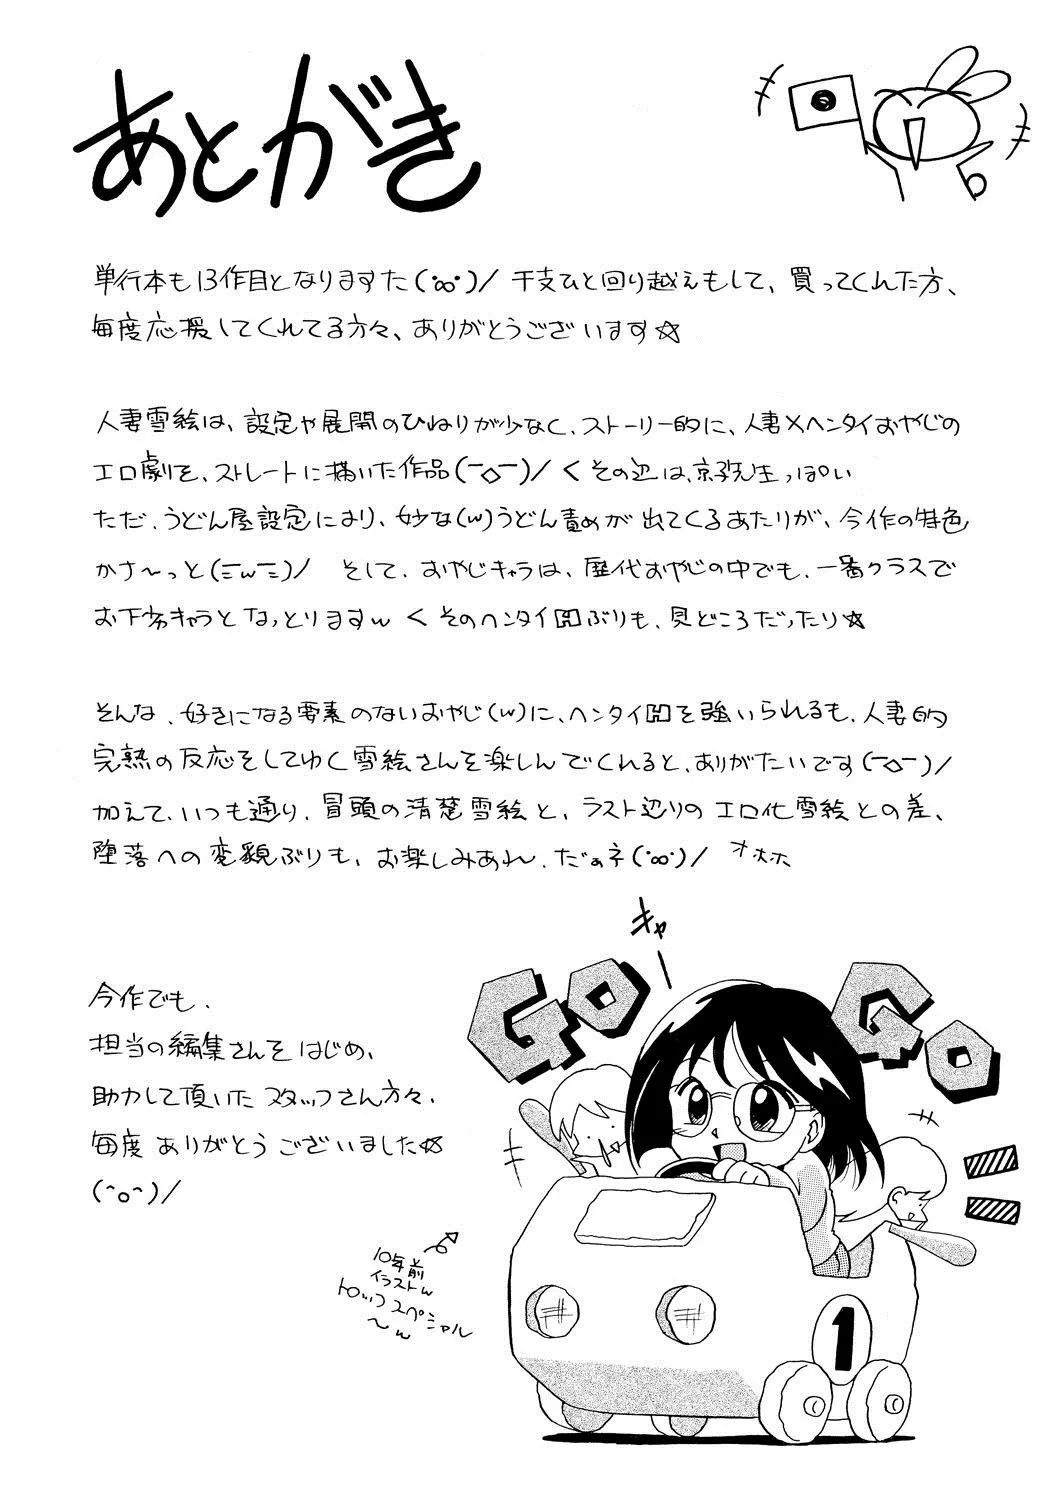 あとがき
単行本も13作目となりますた(･ω･)/ 干支ひと回り越えもして、買ってくんた方、
毎度応援してくれてる方々、ありがとうございます☆
人妻雪絵は、設定や展開のひねりが少なく、ストーリー的に、人妻×ヘンタイおやじの
エロ劇を、ストレートに描いた作品(￣◇￣)/ くその辺は、京子先生っぽい
ただ、うどん屋設定により、妙な(w)うどん責めが出てくるあたりが、今作の特色
かさ〜っと(ΞwΞ)/ そして、おやじキャラは、歴代おやじの中でも、一番クラスで
お下劣キャラとなっとりますw くそのヘンタイHぶりも、見どころだったり☆
そんな、好きになる要素のないおやじ(w)に、ヘンタイHを強いられるも、人妻的
完熟の反応をしてゆく雪絵さんを楽しんでくれると、ありがたいです(￣◇￣)/
加えて、いつも通り、冒頭の清楚雪絵と、ラスト辺りのエロ化雪絵との差、
堕落への変貌ぶりも、お楽しみあれ、だぁネ(･ω･)/ オホホ
キャ
GO GO
今作でも、
担当の編集さんをはじめ、
助力して頂いたスタッフさん方々、
毎度ありがとうございました☆
(^o^)/
10年前
イラストw
トップスペシャル
〜w
1